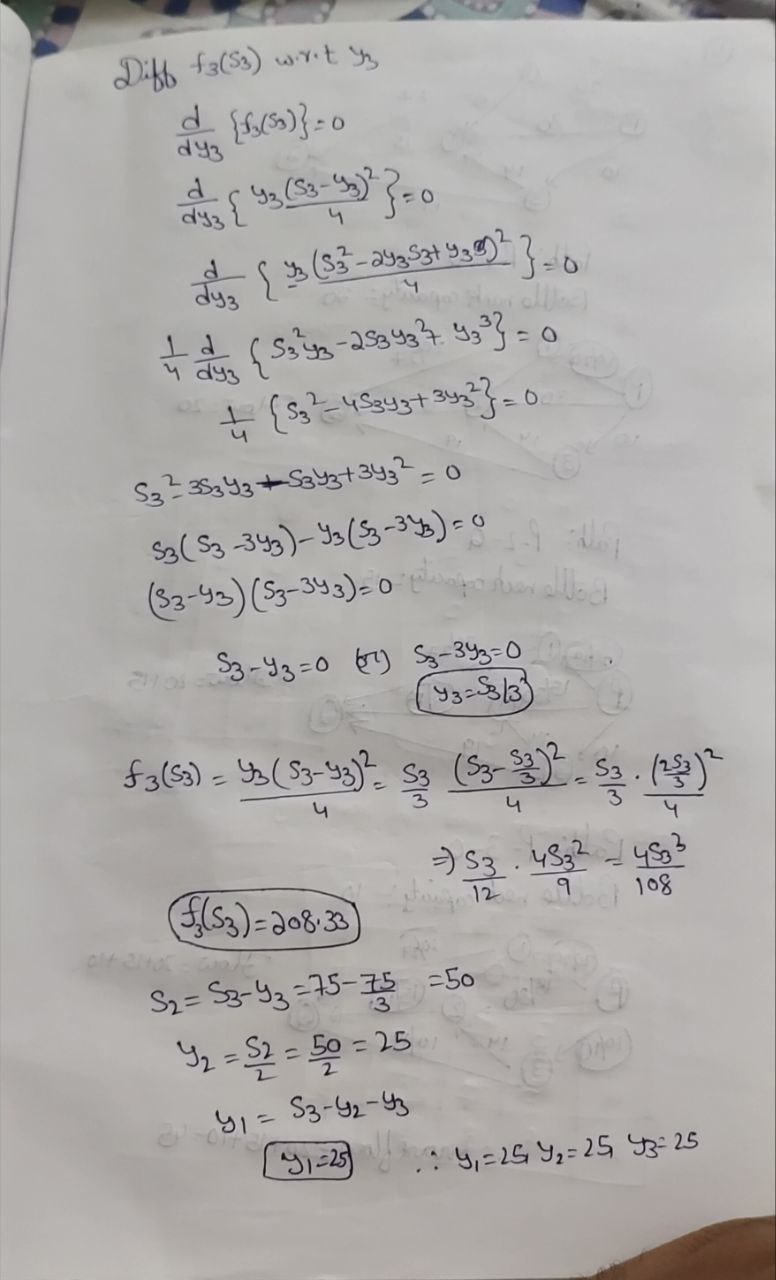 Diff f₃(S₃) w.r.t y₃
d/dy₃ {f₃(S₃)} = 0
d/dy₃ { y₃(S₃-y₃)²/4 } = 0
d/dy₃ { y₃(S₃²-2y₃S₃+y₃)²/4 } = 0
1/4 d/dy₃ { S₃²y₃-2S₃y₃²+ y₃³} = 0
1/4 {S₃²-4S₃y₃+3y₃²} = 0
S₃²-3S₃y₃-S₃y₃+3y₃² = 0
S₃(S₃-3y₃)-y₃(S₃-3y₃) = 0
(S₃-y₃)(S₃-3y₃) = 0
S₃-y₃=0 (or) S₃-3y₃=0
y₃=S₃/3
f₃(S₃) = y₃(S₃-y₃)²/4 = S₃/3 (S₃-S₃/3)²/4 = S₃/3 · (2S₃/3)²/4
⇒ S₃/12 · 4S₃²/9 = 4S₃³/108
f₃(S₃)=208.33
S₂= S₃-y₃ =75-75/3 =50
y₂ = S₂/2 = 50/2 = 25
y₁ = S₃-y₂-y₃
y₁=25 ∴ y₁=25, y₂=25, y₃=25